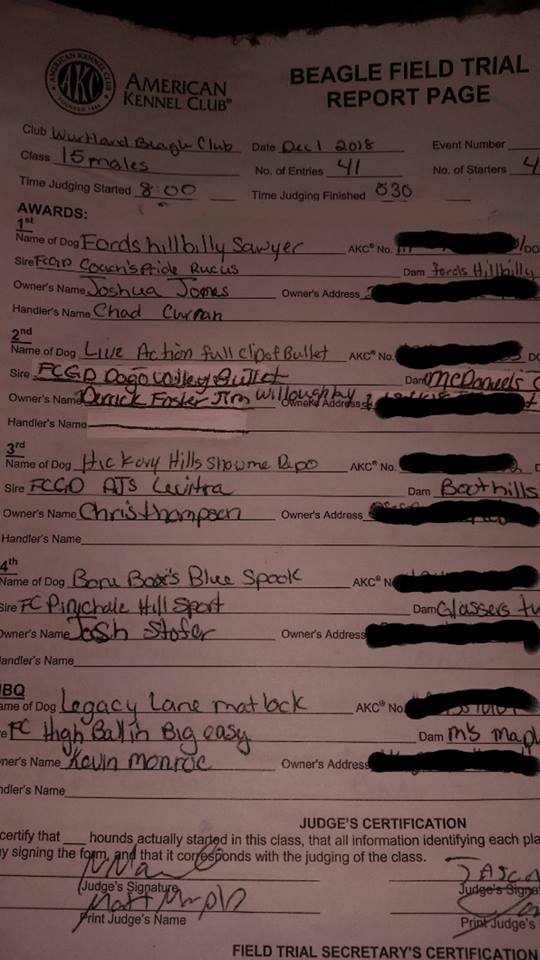 AMERICAN KENNEL CLUB
AKC
FOUNDED 1884
AMERICAN
KENNEL CLUB®
BEAGLE FIELD TRIAL
REPORT PAGE
Club Wurtland Beagle Club Date Dec 1 2018 Event Number
Class 15 males No. of Entries 41 No. of Starters 4
Time Judging Started 8:00 Time Judging Finished 530
AWARDS:
1st
Name of Dog Fords hillbilly Sawyer AKC® No.
Sire FCGD Coach's Pride Rucus Dam Fords Hillbilly
Owner's Name Joshua Jones Owner's Address
Handler's Name Chad Curnan
2nd
Name of Dog Live Action full clip of Bullet AKC® No.
Sire FCGD Dogo Valley Bullet Dam McDaniels
Owner's Name Derrick Foster Jim Willoughby Owner's Address
Handler's Name
3rd
Name of Dog Hickory Hills Show me Depo AKC® No.
Sire FCGD AJS Levitra Dam Boothills
Owner's Name Chris thompson Owner's Address
Handler's Name
4th
Name of Dog Bone Box's Blue Spook AKC® N
Sire FC Pinychale Hill Sport Dam Glassers
Owner's Name Josh Stofer Owner's Address
Handler's Name
NBQ
ame of Dog Legacy Lane matlock AKC® No
e FC High Ballin Big easy Dam m's
ner's Name Kevin Monroe Owner's Address
ndler's Name
JUDGE'S CERTIFICATION
certify that ___ hounds actually started in this class, that all information identifying each pla
y signing the form, and that it corresponds with the judging of the class.
Judge's Signature Judge's Signa
Matt
Print Judge's Name Print Judge's
FIELD TRIAL SECRETARY'S CERTIFICATION